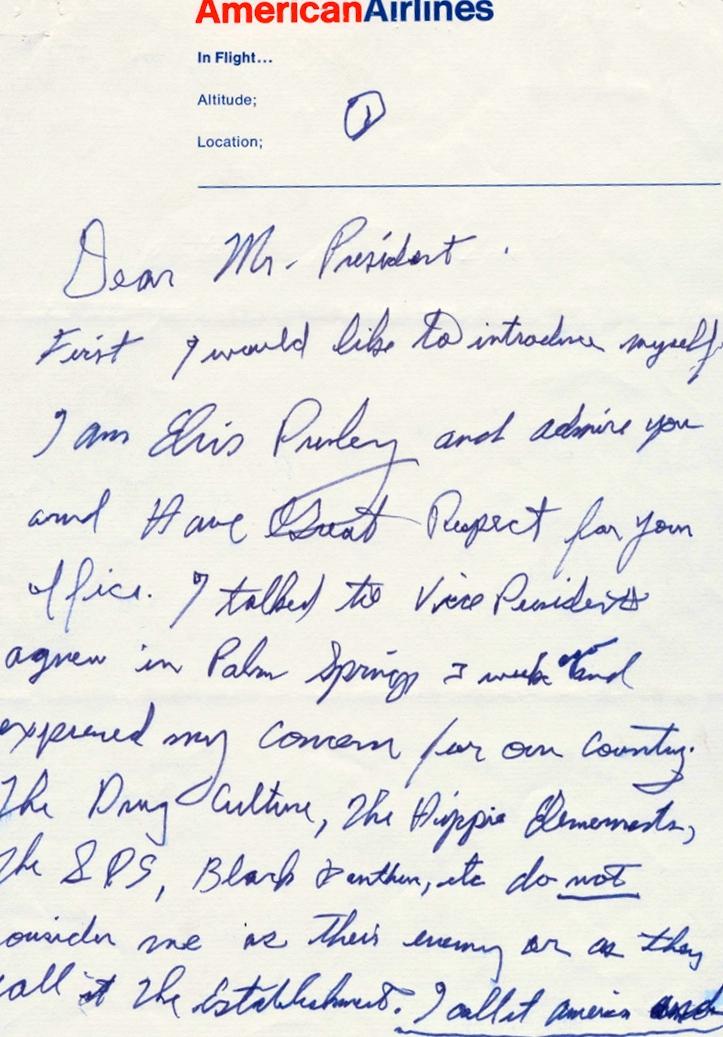 AmericanAirlines
In Flight...
Altitude;
Location;
1
Dear Mr. President.
First I would like to introduce myself.
I am Elvis Presley and admire you
and Have Great Respect for your
office. I talked to Vice President
agnew in Palm Springs week and
expressed my concern for our country.
The Drug Culture, The Hippie Elements,
the SDS, Black Panthers, etc do not
consider me as their enemy or as they
call it The Establishment. I call it america and